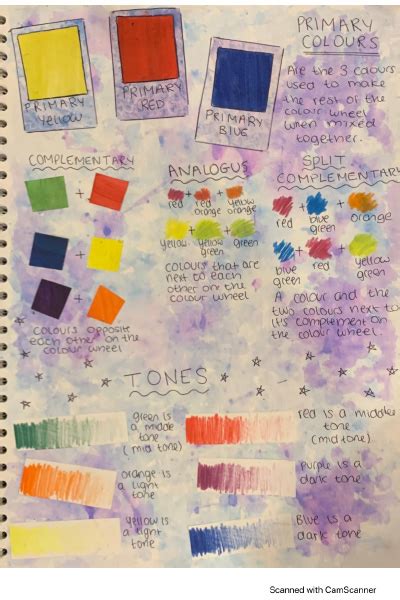 PRIMARY
COLOURS
PRIMARY
YELLOW
PRIMARY
RED
PRIMARY
BLUE
Are the 3 colours
used to make
the rest of the
colour wheel
when mixed
together.
COMPLEMENTARY
+
+
+
COLOURS OPPOSITE
each other on the
colour wheel
ANALOGUS
+ +
red red orange yellow orange
+ +
yellow yellow green green
COLOURS that are
next to each
other on the
colour wheel
SPLIT
COMPLEMENTARY
+ +
red blue green orange
+ +
blue green red yellow green
A colour and the
two colours next to
it's complement on
the colour wheel
TONES
green is
a middle
tone
(mid tone)
red is a middle
tone
(mid tone)
orange is
a light
tone
Purple is a
dark tone
yellow is a
light tone
Blue is a
dark tone
Scanned with CamScanner